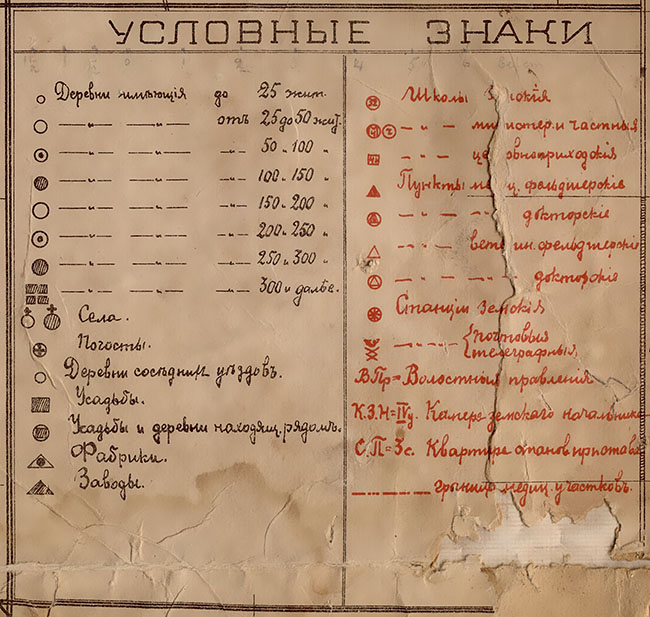 УСЛОВНЫЕ ЗНАКИ
Деревни имѣющія до 25 жит.
— „ — — „ — отъ 25 до 50 жит.
— „ — — „ — — „ — 50 „ 100 „
— „ — — „ — — „ — 100 „ 150 „
— „ — — „ — — „ — 150 „ 200 „
— „ — — „ — — „ — 200 „ 250 „
— „ — — „ — — „ — 250 „ 300 „
— „ — — „ — — „ — 300 и далѣе.
Села.
Погосты.
Деревни сосѣднихъ уѣздовъ.
Усадьбы.
Усадьбы и деревни находящ. рядомъ.
Фабрики.
Заводы.
Школы Земскія
— „ — министер. и частныя
— „ — церковноприходскія
Пункты медиц. фельдшерскіе
— „ — „ — докторскіе
— „ — ветеин. фельдшерскіе
— „ — „ — докторскіе
Станціи Земскія
— „ — „ — { почтовыя
телеграфныя
В Пр = Волостныя правления
К.З.Н = IVу. Камера земского начальника
С.П = 3с. Квартира станов. пристава
границы медиц. участковъ.